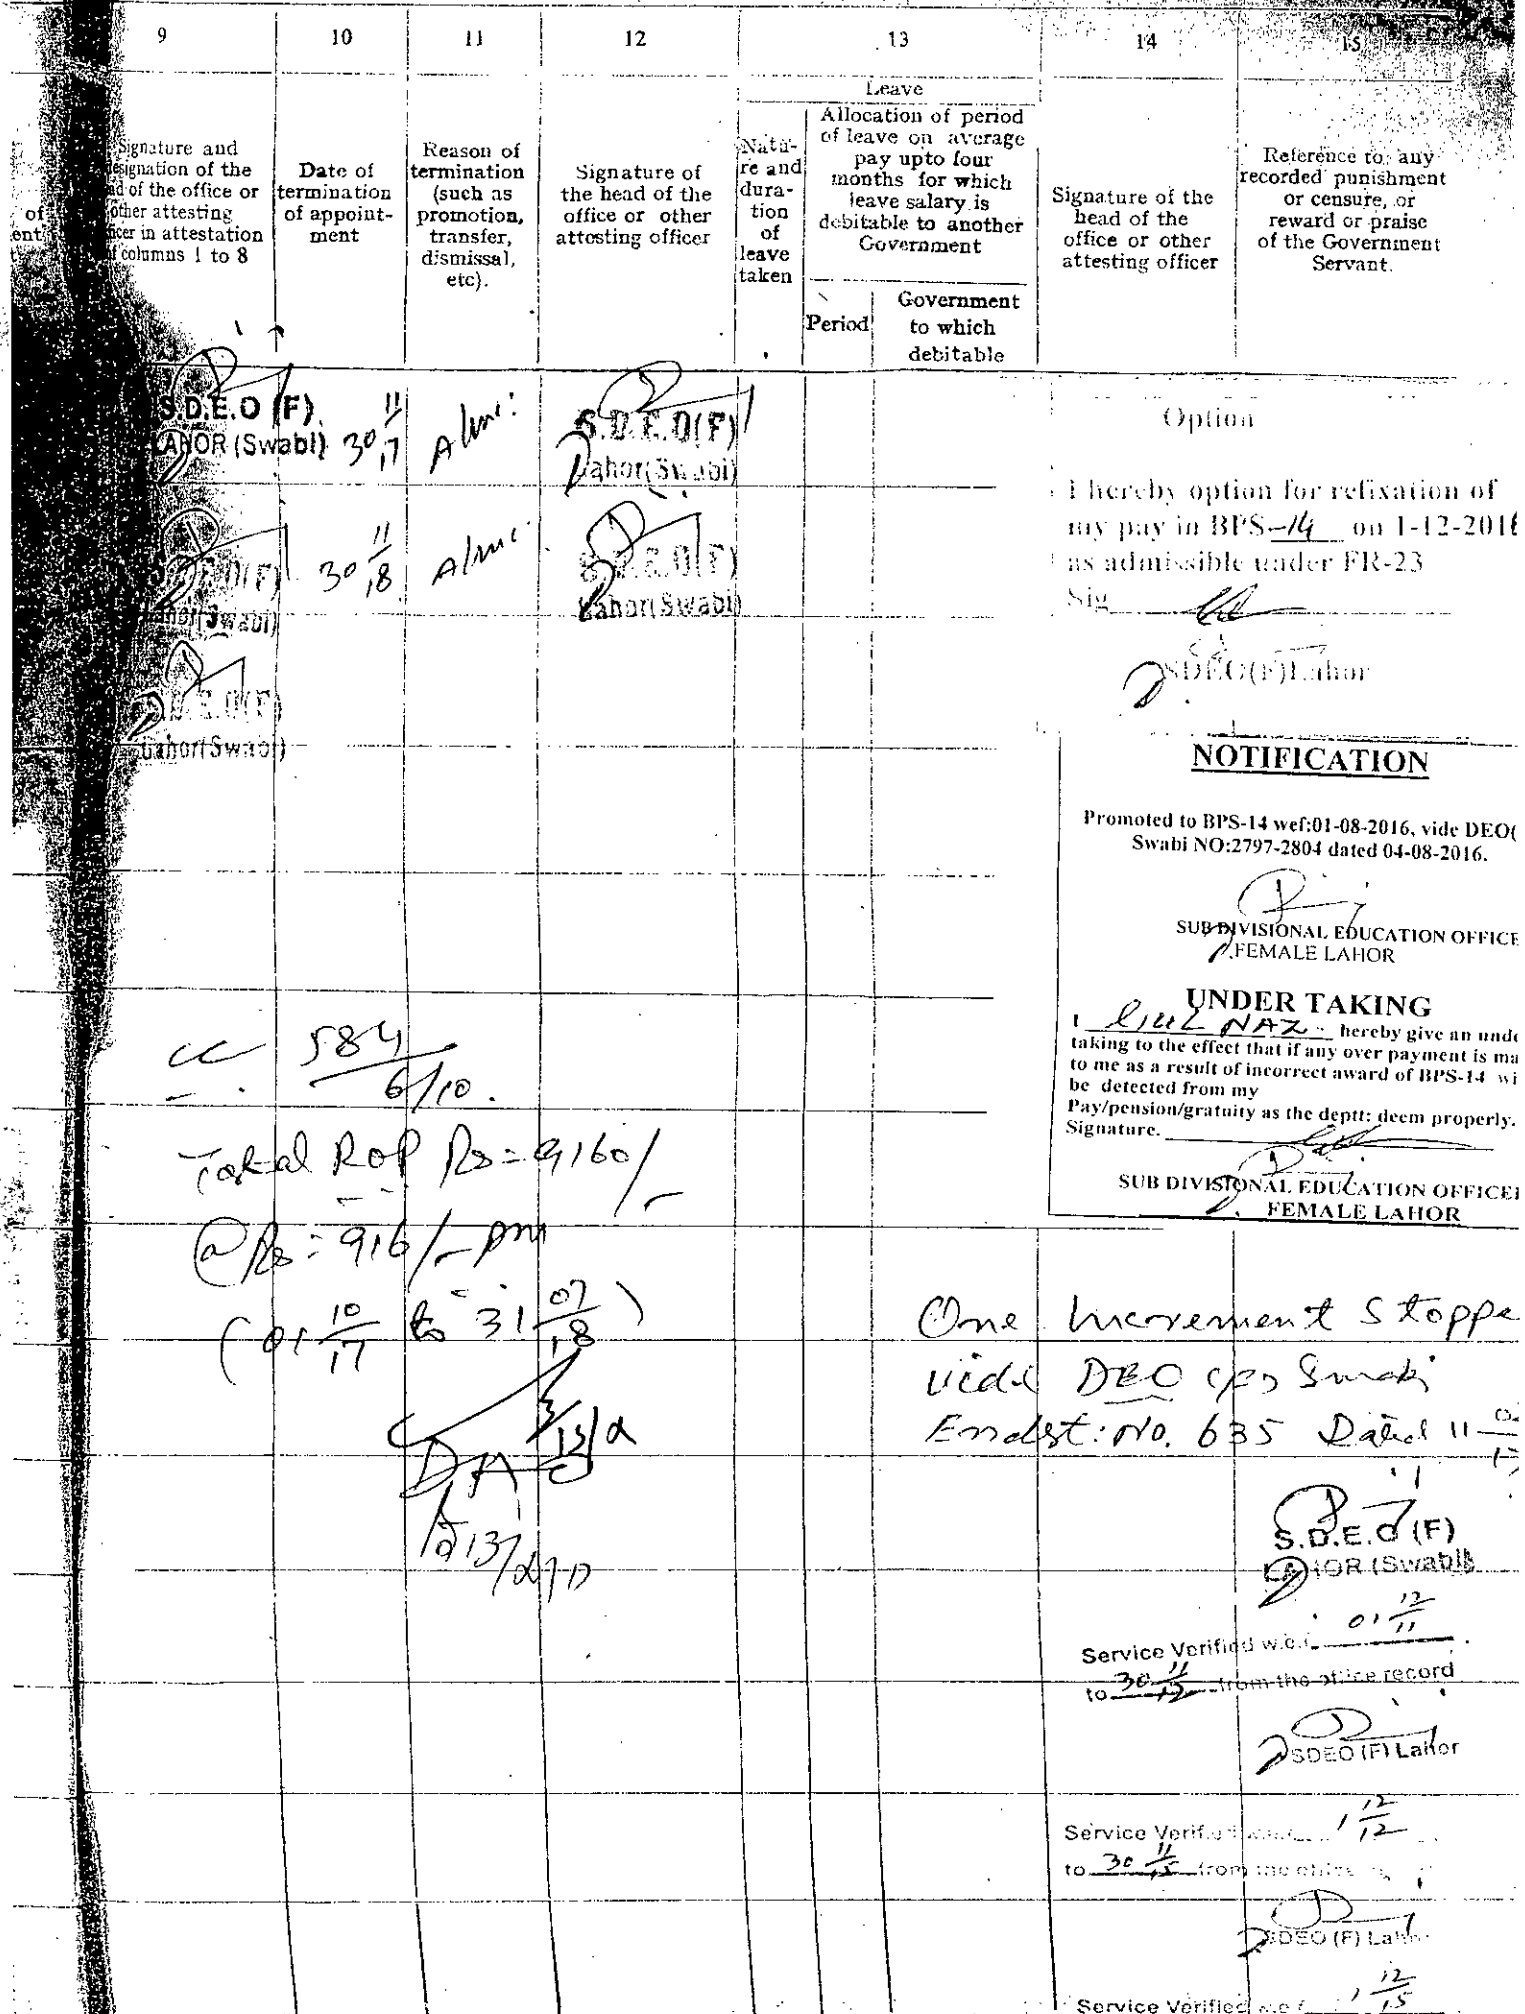 9 10 11 12 13 14 15
Leave
Signature and
designation of the
of the office or
other attesting
in attestation
columns 1 to 8
of
Date of
termination
of appoint-
ment
Reason of
termination
(such as
promotion,
transfer,
dismissal,
etc).
Signature of
the head of the
office or other
attesting officer
Natu-
re and
dura-
tion
of
leave
taken
Allocation of period
of leave on average
pay upto four
months for which
leave salary is
debitable to another
Government
Period
Government
to which
debitable
Signature of the
head of the
office or other
attesting officer
Reference to any
recorded punishment
or censure, or
reward or praise
of the Government
Servant.
S.D.E.O (F)
LAHOR (Swabi)
30 11/17
S.D.E.O(F)
Lahor(Swabi)
S.D.E.O(F)
Lahor(Swabi)
30 11/18
S.D.E.O(F)
Lahor(Swabi)
S.D.E.O(F)
Lahor(Swabi)
Option
I hereby option for refixation of
my pay in BPS-14 on 1-12-2016
as admissible under FR-23
Sig
SDEO(F)Lahor
NOTIFICATION
Promoted to BPS-14 wef:01-08-2016, vide DEO(
Swabi NO:2797-2804 dated 04-08-2016.
SUB DIVISIONAL EDUCATION OFFICE
FEMALE LAHOR
UNDER TAKING
I GUL NAZ hereby give an unde
taking to the effect that if any over payment is ma
to me as a result of incorrect award of BPS-14 wi
be detected from my
Pay/pension/gratuity as the deptt: deem properly.
Signature.
SUB DIVISIONAL EDUCATION OFFICE
FEMALE LAHOR
584
6/10.
Total ROP Rs=9160/-
@Rs=916/-pm
(01 10/17 to 31 07/18)
One Increment Stoppe
vide DEO (F) Swabi
Endst: No. 635 Dated 11
S.D.E.O (F)
LAHOR (Swabi)
Service Verified w.e.f. 01 12/11
to 30 11/12 from the office record
SDEO (F) Lahor
Service Verified 1 12/12
to 30 11/15 from the office
SDEO (F) Lahor
Service Verified w.e.f 1 12/15